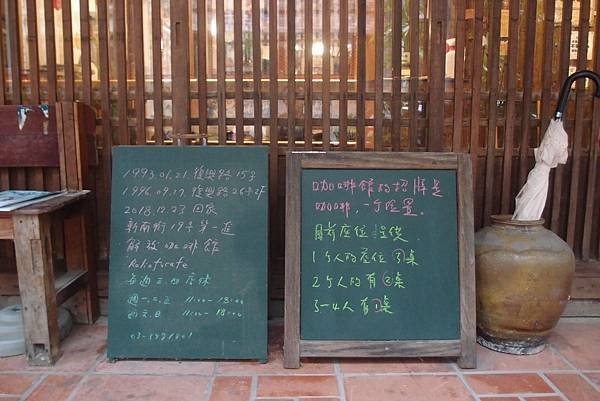 1993.01.21.復興路15号
1996.09.17.復興路26号2F
2018.12.23 回家
新南街17号第一進
解放咖啡館
Reliefcafe
每週三.四店休
週一.二.五 11:00~18:00
週六.日 11:00~18:00
咖啡館的招牌是
咖啡,一介座疊。
目前座位設從
1个人的座位③桌
2个人的有②桌
3~4人有①桌